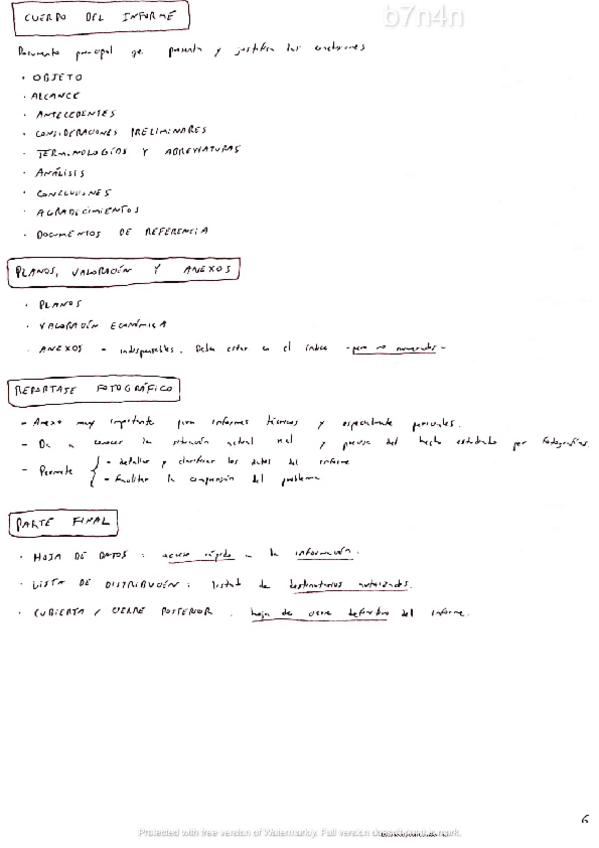 CUERPO DEL INFORME
b7n4n
Documento principal que presenta y justifica las conclusiones
· OBJETO
· ALCANCE
· ANTECEDENTES
· CONSIDERACIONES PRELIMINARES
· TERMINOLOGÍAS Y ABREVIATURAS
· ANÁLISIS
· CONCLUSIONES
· AGRADECIMIENTOS
· DOCUMENTOS DE REFERENCIA
PLANOS, VALORACIÓN Y ANEXOS
· PLANOS
· VALORACIÓN ECONÓMICA
· ANEXOS - indispensables. Deben estar en el índice - pero no numerados -
REPORTAJE FOTOGRÁFICO
- Anexo muy importante para informes técnicos y especialmente periciales.
- Da a conocer la situación actual real y precisa del hecho estudiado por fotografías.
- Permite { - detallar y clarificar los datos del informe
- Facilitar la comprensión del problema
PARTE FINAL
· HOJA DE DATOS : acceso rápido a la información.
· LISTA DE DISTRIBUCIÓN : listado de destinatarios autorizados.
· CUBIERTA / CIERRE POSTERIOR : hoja de cierre definitivo del informe.
6
Protected with free version of Watermarkly. Full version doesn't put this mark.